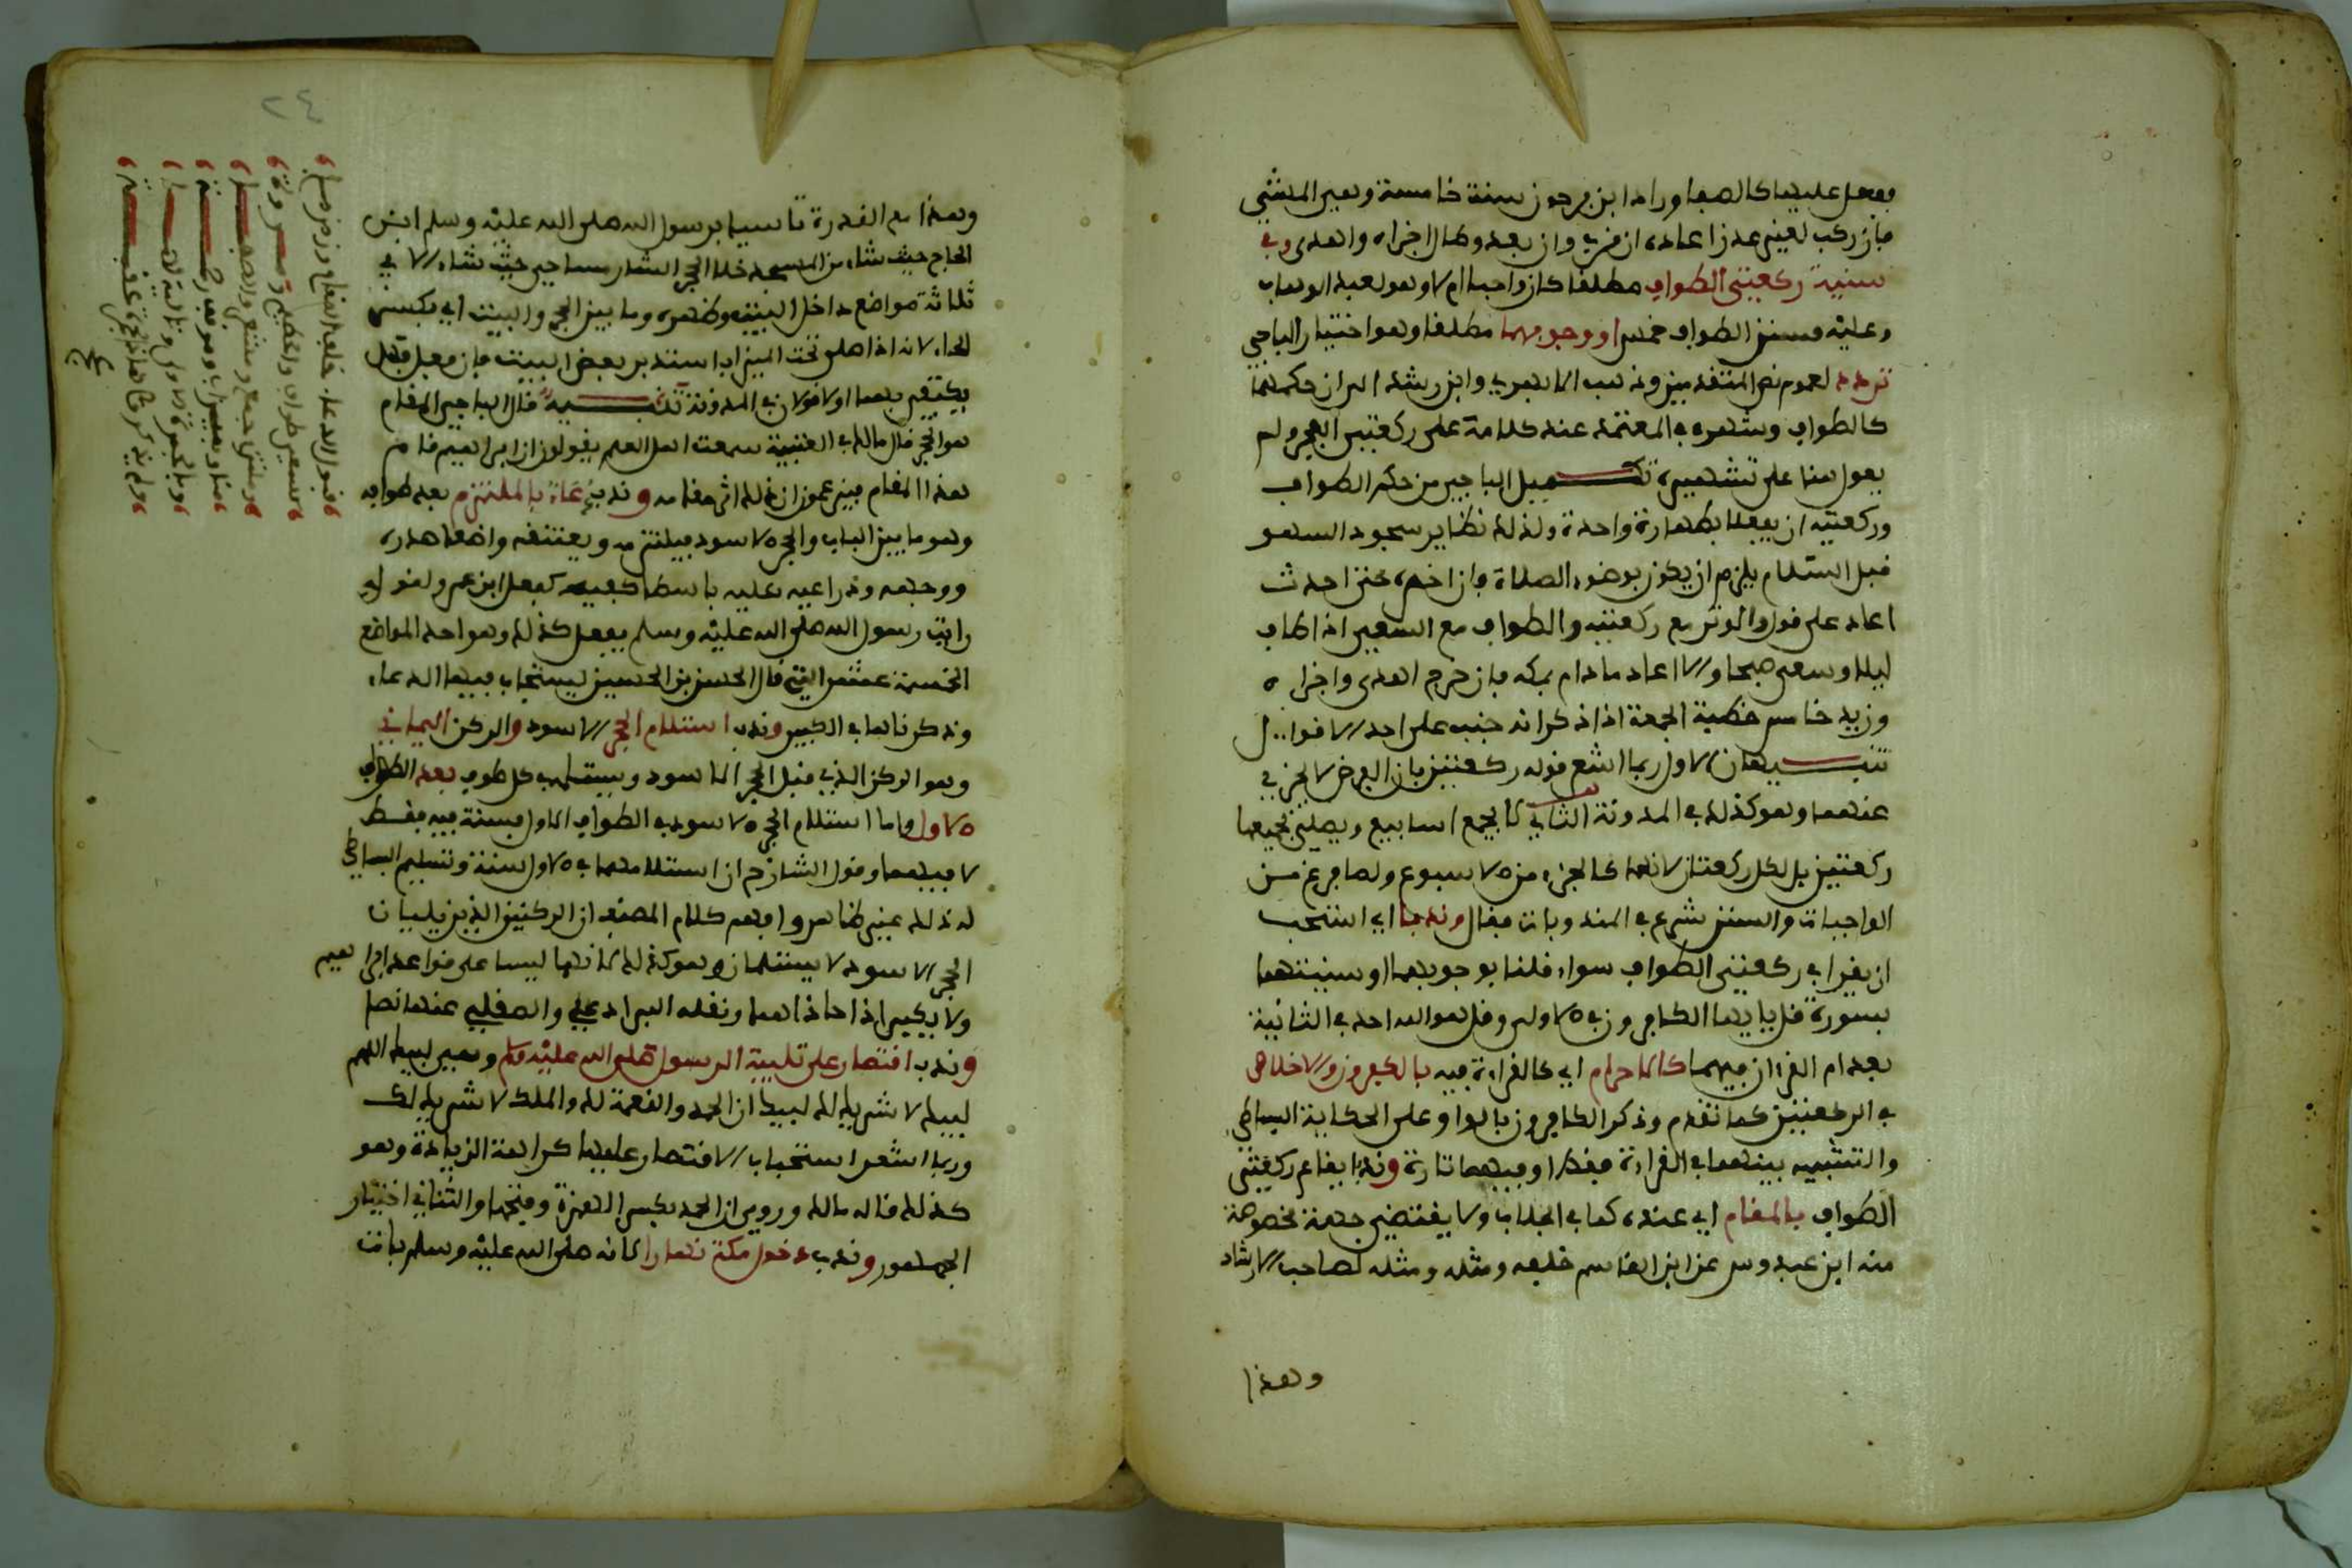 يفعل عليها كالصفا وزاد ابن فرحون سنة خامسة وهي المشي
فإن ركب لغير عذر أعاده إن قرب وإن بعد وطال أجزاه وأهدى وفي
سنية ركعتي الطواف مطلقا كان واجبا أم لا وهو لعبد الوهاب
وعليه فسنن الطواف خمس أو وجوبهما مطلقا وهو اختيار الباجي
تردد لعدم نص المتقدمين وذهب الأبهري وابن رشد إلى أن حكمهما
كالطواف وشهره في المعتمد عند كلامه على ركعتي الفجر ولم
يعول هنا على تشهيره تكميل الباجي من حكم الطواف
وركعتيه أن يفعلا بطهارة واحدة ولذلك نظاير سجود السهو
قبل السلام يلزم أن يكون بوضوء الصلاة وإن أخره حتى أحدث
أعاد على قول والوتر مع ركعتيه والطواف مع السعي إذا طاف
ليلا وسعى صبحا وإلا أعاد ما دام بمكة فإن خرج أهدى وأجزاه
وزيد خامس خطبة الجمعة إذا ذكر أنه جنب على أحد الأقوال
تنبيهان الأول ربما أشعر قوله ركعتين بأن الفرض لا يجزي
عنهما وهو كذلك في المدونة الثاني لا يجمع أسابيع ويصلي لجميعها
ركعتين بل لكل ركعتان لأنهما كالجزء من الأسبوع ولما فرغ من
الواجبات والسنن شرع في المندوبات فقال وندبا أي استحب
أن يقرأ في ركعتي الطواف سواء قلنا بوجوبهما أو سنيتهما
بسورة قل يا أيها الكافرون في الأولى وقل هو الله أحد في الثانية
بعد أم القرآن فيهما كالإحرام أي كالقراءة فيه بالكافرون والإخلاص
في الركعتين كما تقدم وذكر الكافرون بالواو على الحكاية البساطي
والتشبيه بينهما في القراءة فقط أو فيهما تارة وندبا إيقاع ركعتي
الطواف بالمقام أي عنده كما في الجلاب ولا يقتضي جهة مخصوصة
منه ابن عبدوس عن ابن القاسم خلفه ومثله ومثله لصاحب الإرشاد
وهذا
وهذا مع القدرة تأسيا برسول الله صلى الله عليه وسلم ابن
الحاج حيث شاء من المسجد خلا الحجر الشارمساحي حيث شاء إلا في
ثلاثة مواضع داخل البيت وظهره وما بين الحجر والبيت أي بكسر
الحاء لأنه إذا صلى تحت الميزاب استدبر بعض البيت فإن فعل فهل
يكتفي بهما أو لا قولان في المدونة تنبيه قال الباجي المقام
هو الحجر قال مالك في العتبية سمعت أهل العلم يقولون إن إبراهيم قام
هذا المقام فيزعمون أن ذلك أثر مقامه وندب دعاء بالملتزم بعد طوافه
وهو ما بين الباب والحجر الأسود فيلتزمه ويعتنقه واضعا صدره
ووجهه وذراعيه عليه باسطا كفيه كفعل ابن عمر ولقوله
رأيت رسول الله صلى الله عليه وسلم يفعل كذلك وهو أحد المواضع
الخمسة عشر التي قال الحسن بن الحسين يستجاب فيها الدعاء
وذكرناها في الكبير وندب استلام الحجر الأسود والركن اليماني
وهو الركن الذي قبل الحجر الأسود وسيقابل في كل طوف بعد الطواف
الأول وأما استلام الحجر الأسود في الطواف الأول فسنة فيه فقط
لا فيهما وقول الشارح إن استلامهما في الأول سنة وتسليم البساطي
له ذلك غير ظاهر وافهم كلام المصنف أن الركنين الذين يليان
الحجر الأسود لا يستلمان وهو كذلك لأنهما ليسا على قواعد إبراهيم
ولا يكبر إذا حاذاهما ونقله البرادعي والصقلي عنها نصا
وندب اقتصار على تلبية الرسول صلى الله عليه وسلم وهي لبيك اللهم
لبيك لا شريك لك لبيك إن الحمد والنعمة لك والملك لا شريك لك
وربما أشعر استحباب الاقتصار عليها كراهة الزيادة وهو
كذلك قاله مالك وروي إن الحمد بكسر الهمزة وفتحها والثاني اختيار
الجمهور وندب دخول مكة نهارا لأنه صلى الله عليه وسلم بات
٢٤
قبول الدعاء خلف المقام وزمزم